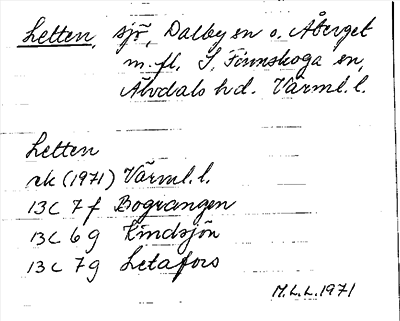 Letten, sjö, Dalby sn o. Åberget
m. fl. S. Finnskoga sn,
Älvdals hd. Värml. l.
Letten
ek (1971) Värml. l.
13C 7f Bograngen
13C 6g Kindsjön
13C 7g Letafors
M.L.L. 1971